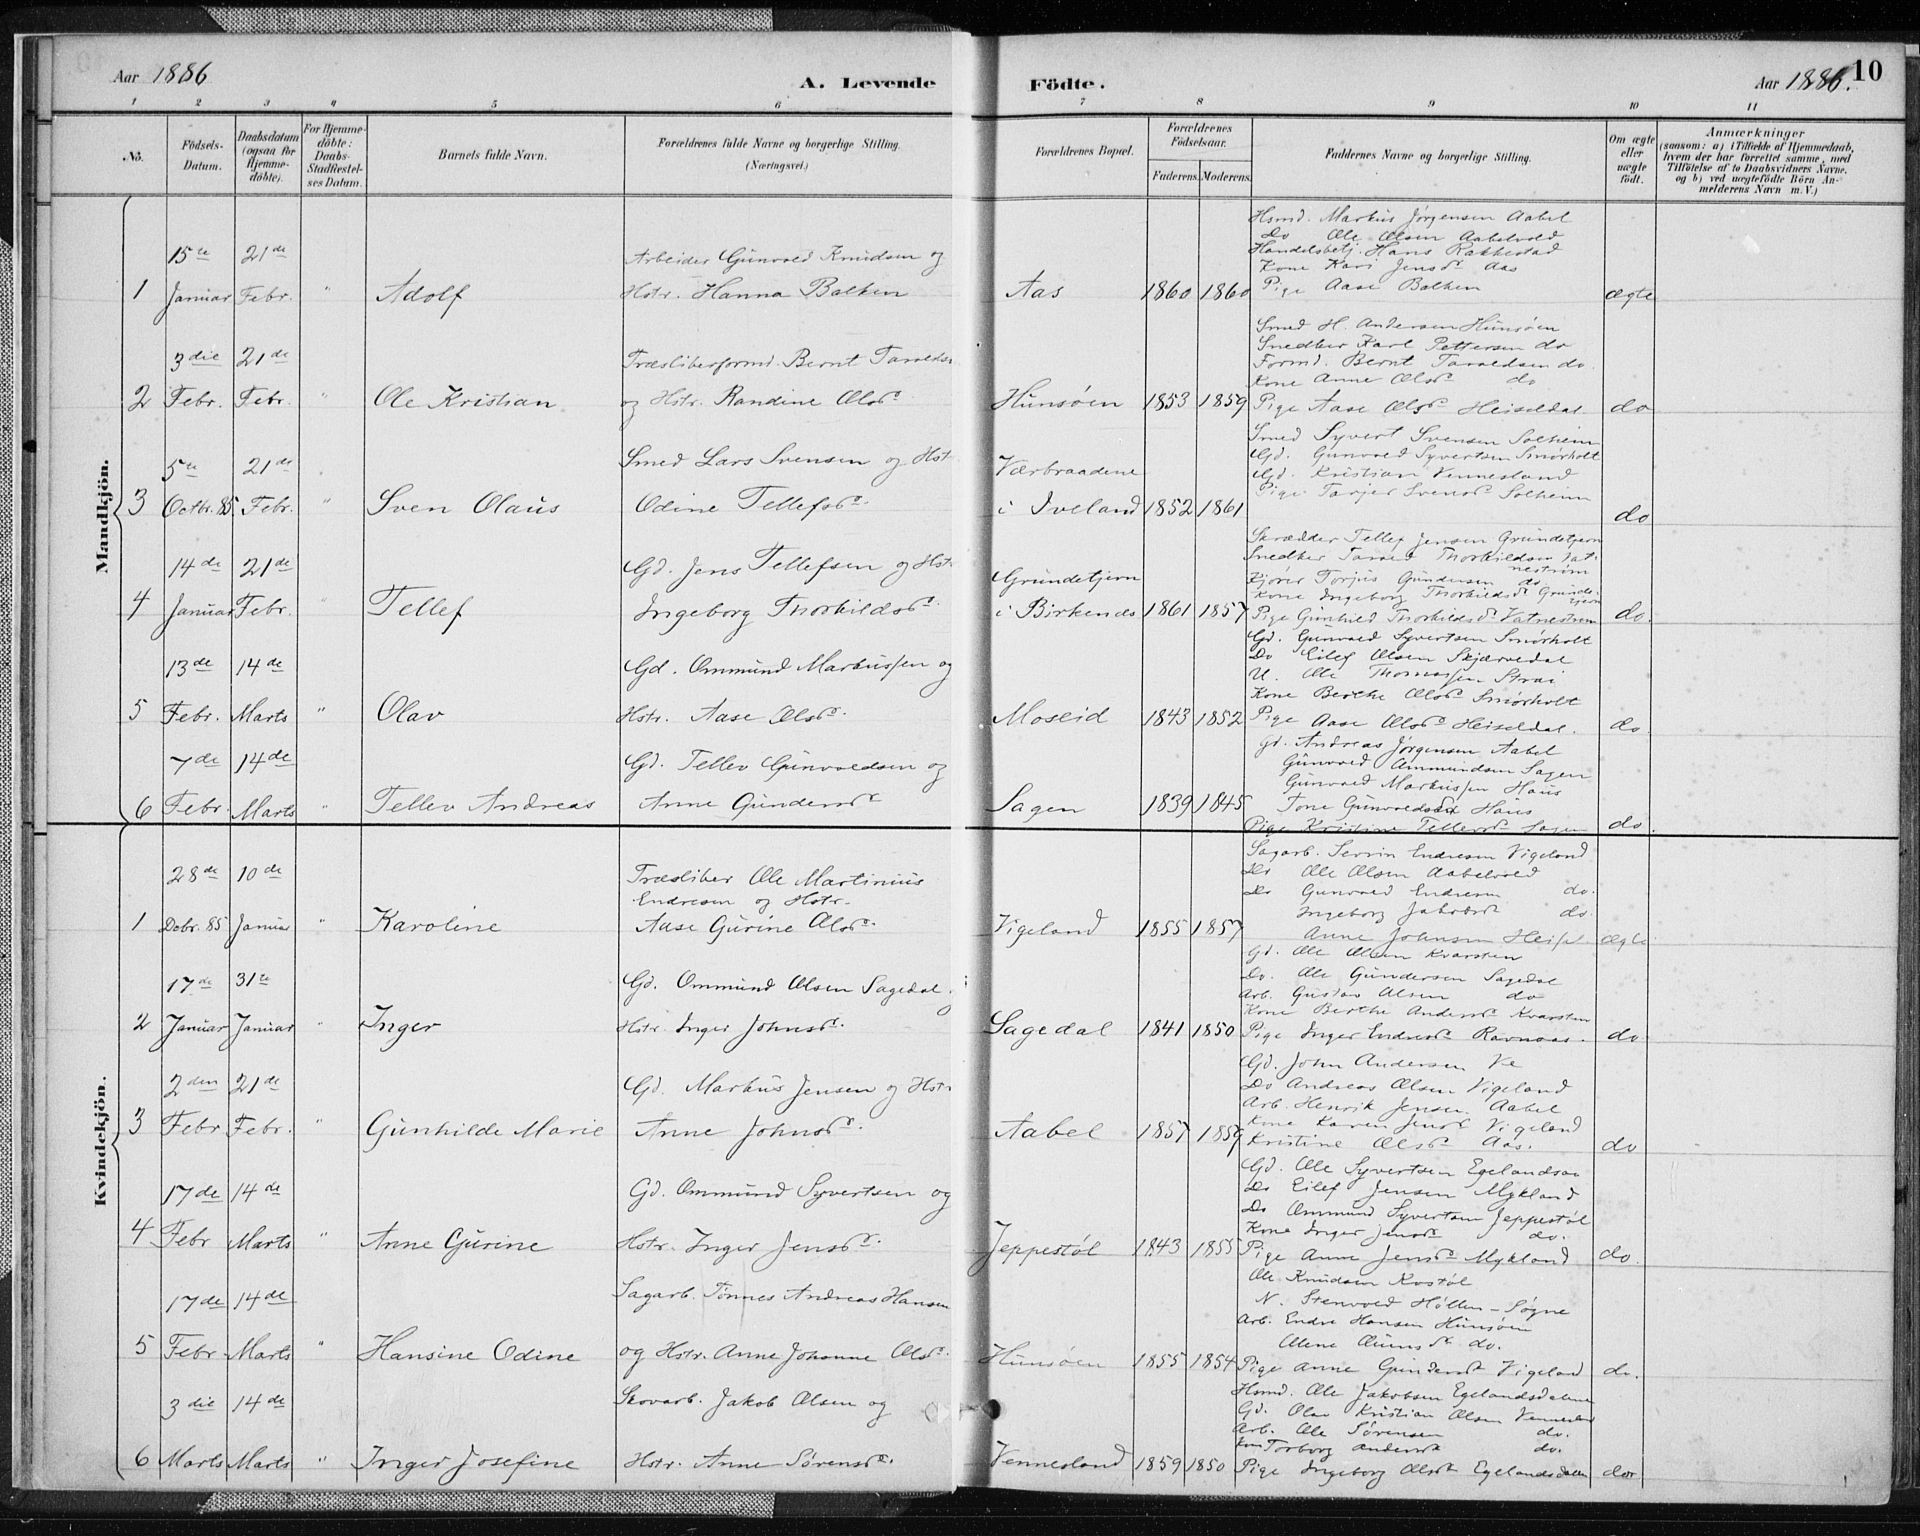 Aar 1886 A. Levende Födte. Aar 1886. 10
1 2 3 4 5 6 7 8 9 10 11
No. Födsels-Datum. Daabsdatum (ogsaa for Hjemmedöbte). For Hjemmedöbte: Daabs-Stadfæstelses Datum. Barnets fulde Navn. Forældrenes fulde Navne og borgerlige Stilling. (Næringsvei.) Forældrenes Bopæl. Forældrenes Födselsaar. Faderens. Moderens. Faddernes Navne og borgerlige Stilling. Om ægte eller uægte födt. Anmærkninger (saasom: a) i Tilfælde af Hjemmedaab, hvem der har forrettet samme, med Tilföielse af to Daabsvidners Navne, og b) ved uægtefödte Börn Anmelderens Navn m. V.)
Mandkjön.
Hsmd. Markus Jörgensen Aabel
Do Ole Olsen Aabelvold
15de 21de Arbeider Gunvold Knudsen og Handelsbetj. Hans Rakkestad
Kone Kari Jensd. Aas
1 Januar Febr. " Adolf Hstr. Hanna Balken Aas 1860 1860 Pige Aase Balken ægte
Smed H. Andersen Hunsöen
Snedker Karl Pettersen do
3die 21de Træsliberformd. Bernt Taraldsn Formd. Bernt Taraldsen do.
Kone Anne Olsd. do
2 Febr. Febr. " Ole Kristian og Hstr. Randine Olsd. Hunsöen 1853 1859 Pige Aase Olsd. Heiseldal. do
Smed Syvert Svensen Solheim
5te 21de Smed Lars Svensen og Hstr Værbraadene Gd. Gunvold Syvertsen Smörholt
Gd. Kristian Vennesland
3 Octbr. 85 Febr. " Sven Olaus Odine Tellefsd. i Iveland 1852 1861 Pige Tarjer Svensd. Solheim do
Skrædder Tellef Jensen Grundetjern
14de 21de Gd. Jens Tellefsen og Hstr Grundetjern Snedker Tarald Thorkildsen Vatneström
Kjörer Torjus Gundersen do
Kone Ingeborg Thorkildsd. Grundetjern
4 Januar Febr. " Tellef Ingeborg Thorkildsd. i Birkenes 1861 1857 Pige Gunhild Thorkildsd. Vatneström do.
Gd. Gunvold Syvertsen Smörholt
13de 14de Gd. Ommund Markussen og Do Eilef Olsen Skjærvedal
U. Ole Thomassen Strai
Kone Berthe Olsd. Smörholt
5 Febr. Marts " Olav Hstr. Aase Olsd. Moseid 1843 1852 Pige Aase Olsd. Heiseldal. do.
Gd. Andreas Jörgensen Aabel
7de 14de Gd. Tellev Gunvaldsen og Gunvold Ommundsen Sagen
Gunvold Markussen Haus
6 Febr. Marts " Tellev Andreas Anne Gundersd. Sagen 1839 1845 Tone Gunvoldsd. Haus
Pige Kristine Tellevsd. Sagen do.
Kvindekjön.
Sagarb. Servin Endresen Vigeland
28de 10de Træsliber Ole Martinius Do Ole Olsen Aabelvold
Endresen og Hstr. Do Gunvold Endresen do.
Ingeborg Jakobsd. do.
1 Debr. 85 Januar " Karoline Aase Gurine Olsd. Vigeland 1855 1857 Anne Johnsen ægte
Gd. Ole Olsen Kvarsten
17de 31te Gd. Ommund Olsen Sagedal og Do. Ole Gundersen Sagedal
Arb. Gustav Olsen do
Kone Berthe Andersd. Kvarsten
2 Januar Januar " Inger Hstr. Inger Johnsd. Sagedal 1841 1850 Pige Inger Endresd. Ravnaas. do
Gd. John Andersen Ve
2den 21de Gd. Markus Jensen og Hstr Do Andreas Olsen Vigeland
Arb. Henrik Jensen Aabel
3 Febr Febr. " Gunhilde Marie Anne Johnsd. Aabel 1857 1859 Kone Karen Jensd. Vigeland
Kristine Olsd. Aas. do
Gd. Ole Syvertsen Egelandsaa
17de 14de Gd. Ommund Syvertsen og Do Eilef Jensen Mykland
Do Ommund Syvertsen Jeppestöl
Kone Inger Jensd. do.
4 Febr Marts " Anne Gurine Hstr. Inger Jensd. Jeppestöl 1843 1855 Pige Anne Jensd. Mykland do.
Ole Knudsen Kvstöl
17de 14de Sagarb. Tönnes Andreas Hansen N. Stenvold Höllen - Søgne
Arb. Endre Hansen Hunsöen
do.
5 Febr Marts " Hansine Odine og Hstr. Anne Johanne Olsd. Hunsöen 1855 1854 Pige Anne Gundersd. Vigeland do.
Hsmd. Ole Jakobsen Egelandsdalene
3die 14de Skovarb. Jakob Olsen og Gd. Olav Kristian Olsen Vennesland
Arb. Ole Sörensen do.
Kone Torborg Andersd. do.
6 Marts Marts " Inger Josefine Hstr. Anne Sörensd. Vennesland 1859 1850 Pige Ingeborg Olsd. Egelandsdalen do